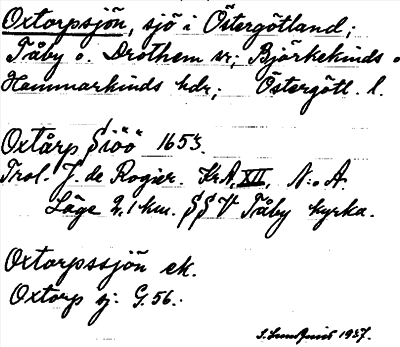 Oxtorpssjön, sjö i Östergötland;
Tåby o. Drothem sr; Björkekinds o
Hammarkinds hdr; Östergötl. l.
Oxtårp Siöö 1653.
Trol. J. de Rogier. KrA, XII, N:o A.
Läge 2,1 km. SSV Tåby kyrka.
Oxtorpssjön ek.
Oxtorp sj. G. 56.
S. Lundquist 1937.